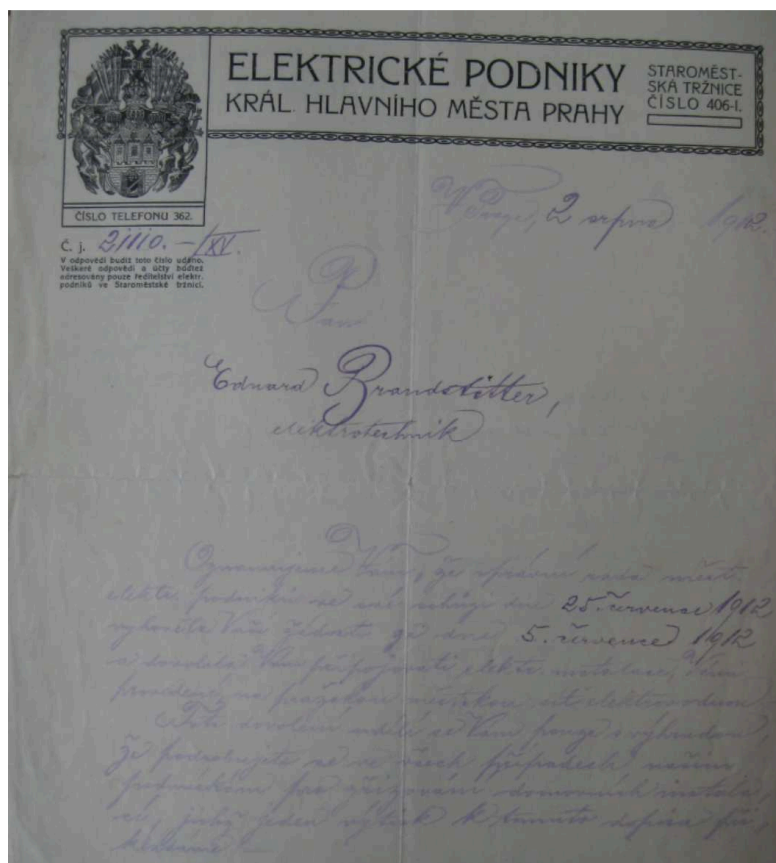 ELEKTRICKÉ PODNIKY
KRÁL. HLAVNÍHO MĚSTA PRAHY
STAROMĚST-
SKÁ TRŽNICE
ČÍSLO 406-I.
ČÍSLO TELEFONU 362.
Č. j. 21110.-/XV.
V odpovědi budiž toto číslo udáno.
Veškeré odpovědi a účty buďtež
adresovány pouze ředitelství elektr.
podniků ve Staroměstské tržnici.
V Praze, 2 srpna 1912.
Pan
Eduard Brandstätter,
elektrotechnik
Oznamujeme Vám, že správní rada měst.
elektr. podniků ve své schůzi dne 25. července 1912
vyhověla Vaší žádosti ze dne 5. července 1912
a dovolila Vám připojovati elektr. instalace, Vámi
provedené, na pražskou městskou síť elektrovodnou
Toto dovolení udílí se Vám pouze s výhradou,
že podrobujete se ve všech případech našim
podmínkám pro zřizování domovních instala-
cí, jichž jeden výtisk k tomuto dopisu při-
kládáme.